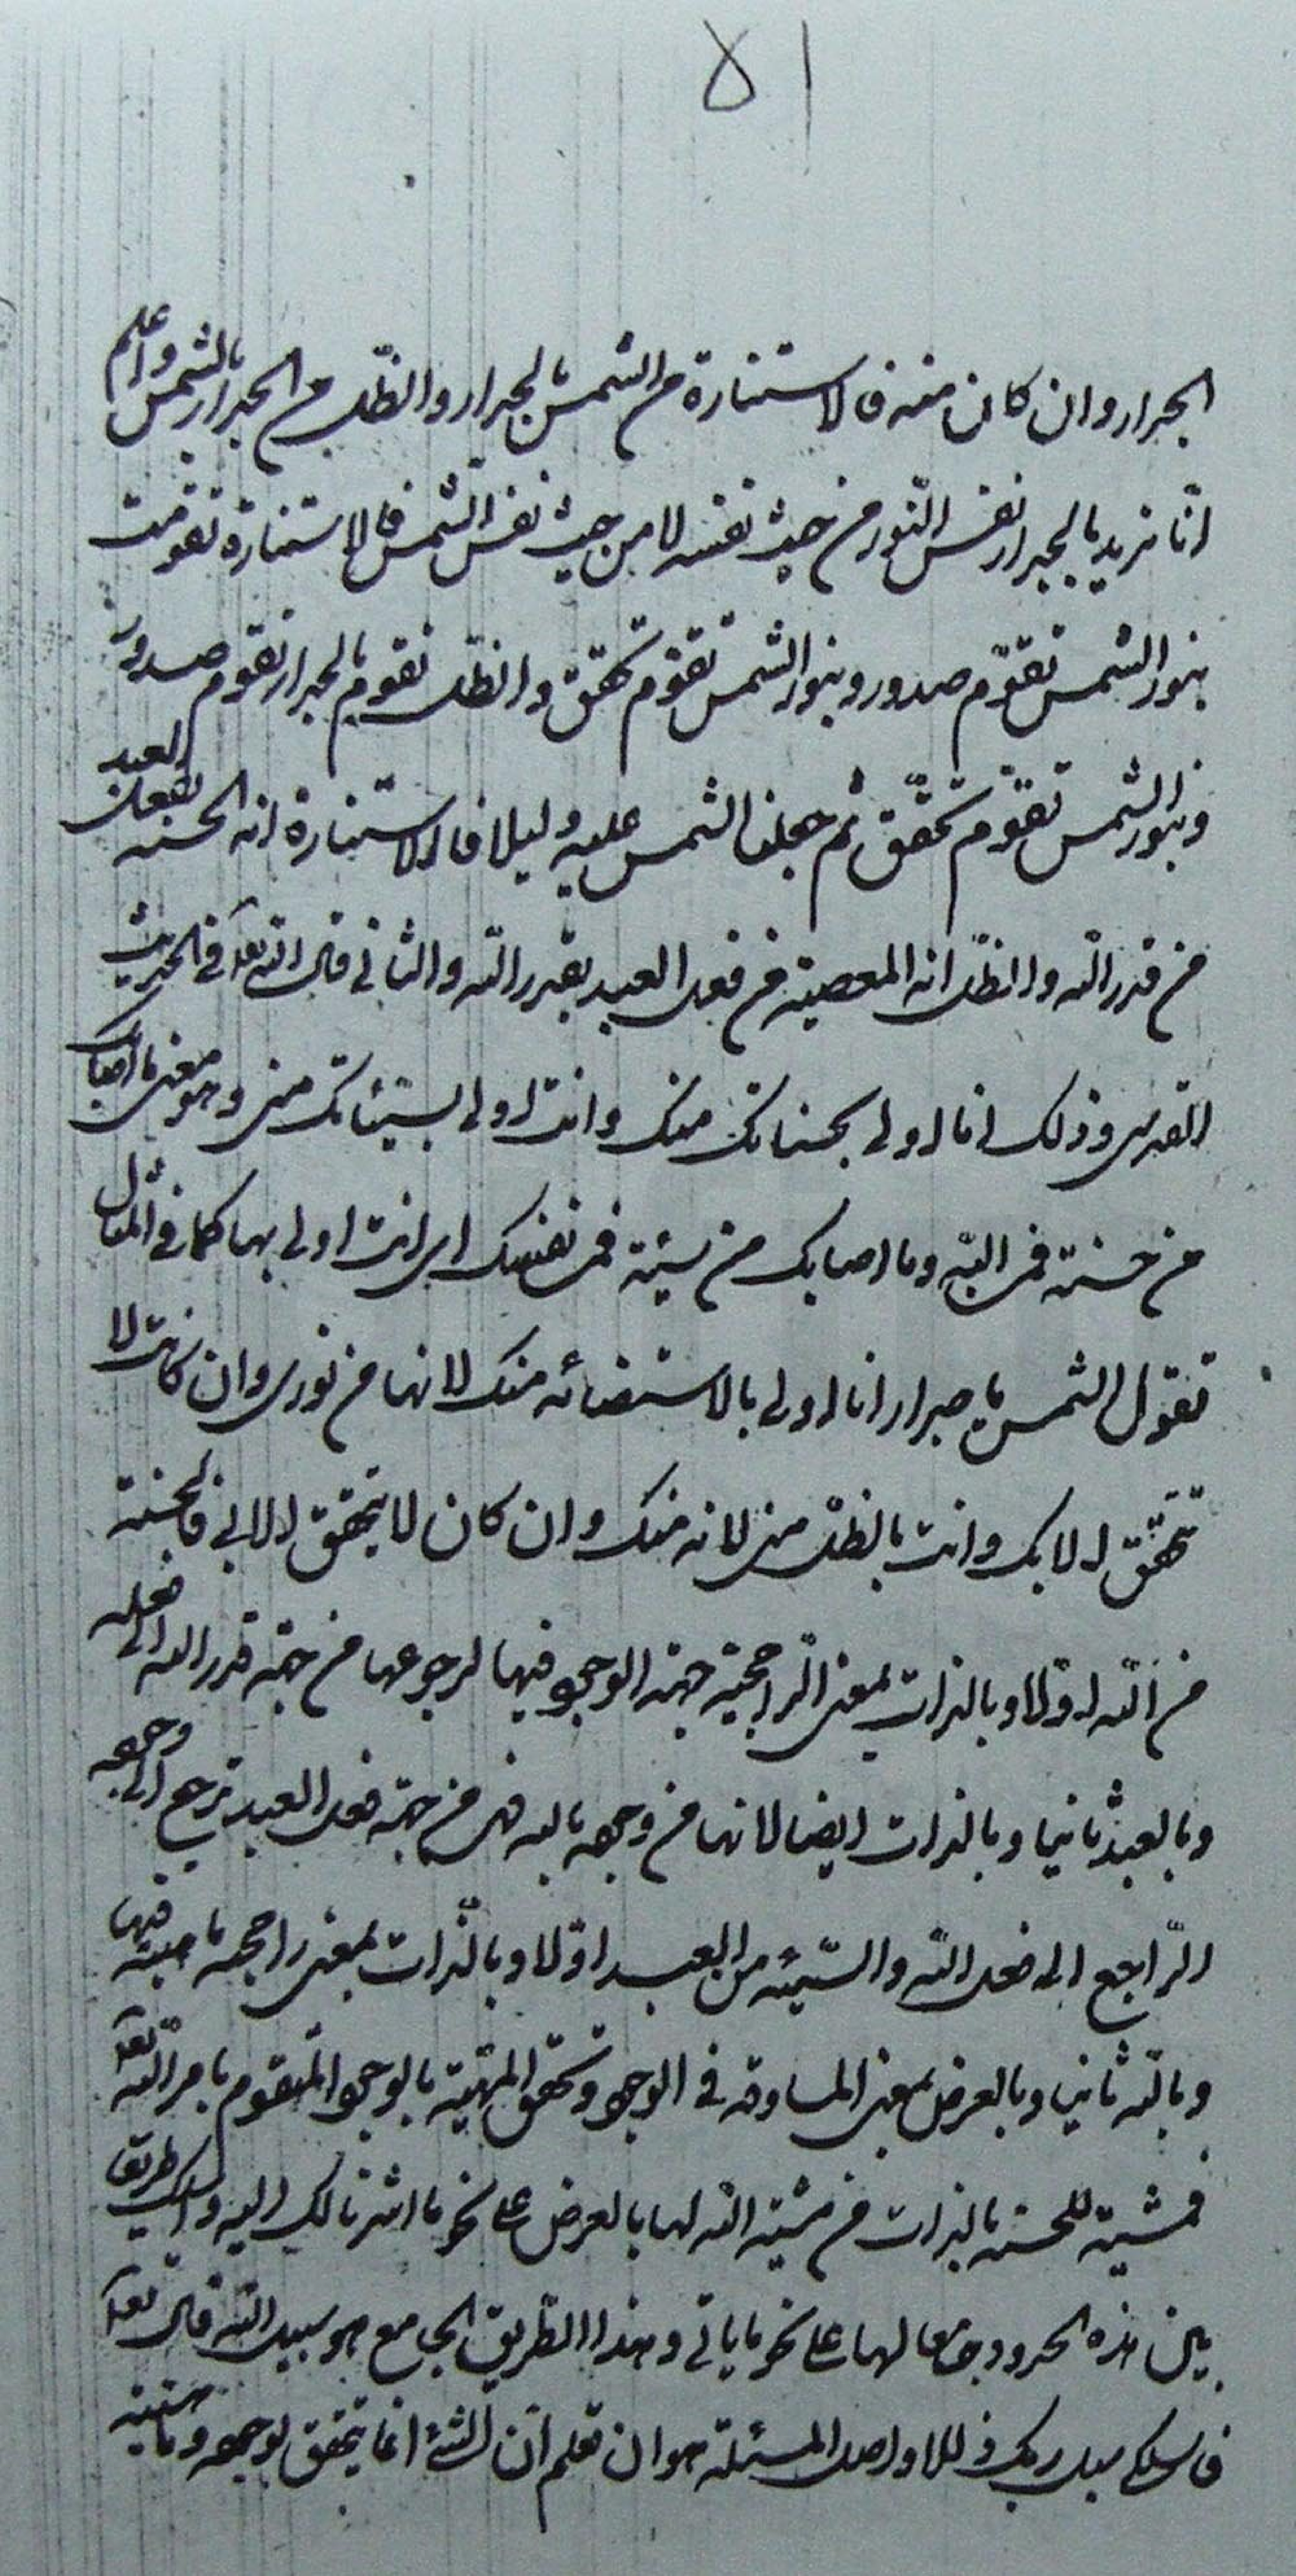 ٥١
الجدار وان كان منه فالاستنارة من الشمس بالجدار والظل من الجدار بالشمس واعلم
انا نريد بالجدار نفس النور من حيث نفسه لا من حيث نفس الشمس فالاستنارة تقومت
بنور الشمس تقوّم صدور وبنور الشمس تقوم تحقق والظل تقوم بالجدار تقوم صدور
وبنور الشمس تقوّم تحقّق ثم جعلنا الشمس عليه دليلا فالاستنارة اية الحسنة بفعل العبد
من قدر الله والظل اية المعصية من فعل العبد بقدر الله والثاني قال الله تعا في الحديث
القدسي وذلك انا اولى بحسناتك منك وانت اولى بسيئاتك مني وهو معنى ما اصابك
من حسنة فمن الله وما اصابك من سيئة فمن نفسك اي انت اولى بها كما في المثال
تقول الشمس يا جدار انا اولى بالاستضائه منك لانها من نوري وان كانت لا
تتحقق الا بك وانت بالظل مني لانه منك وان كان لا يتحقق الا بي فالحسنة
من الله اوّلا وبالذات بمعنى الراجحية جهة الوجود فيها لرجوعها من جهة قدر الله الى فعله
وبالعبد ثانيا وبالذات ايضا لانها من وجهه بالله فهي من جهة فعل العبد ترجع الى وجهه
الرّاجع الى فعل الله والسّيئه من العبد اوّلا وبالذات بمعنى راجحية ماهيته فيها
وبالله ثانيا وبالعرض بمعنى المساوقه في الوجود وتحقق المهية بالوجود المتقوم بامر الله تعا
فمشية للحسنه بالذات من مشية الله لها بالعرض على نحو ما اشرنا لك اليه واسلك طريقا
بين هذه الحدود جامعا لها على نحو ما ياتي وهذا الطريق الجامع هو سبيل الله قال تعا
فاسلكي سبل ربك ذللا واصل المسئلة هو ان تعلم ان الشئ انما يتحقق بوجوده وماهيته